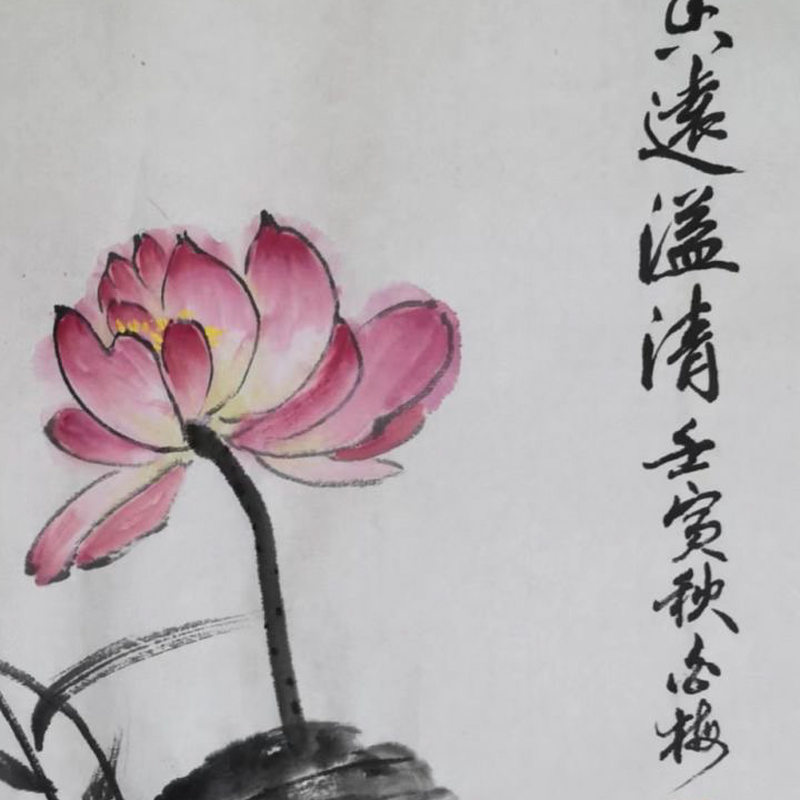 遠溢清壬寅秋梅